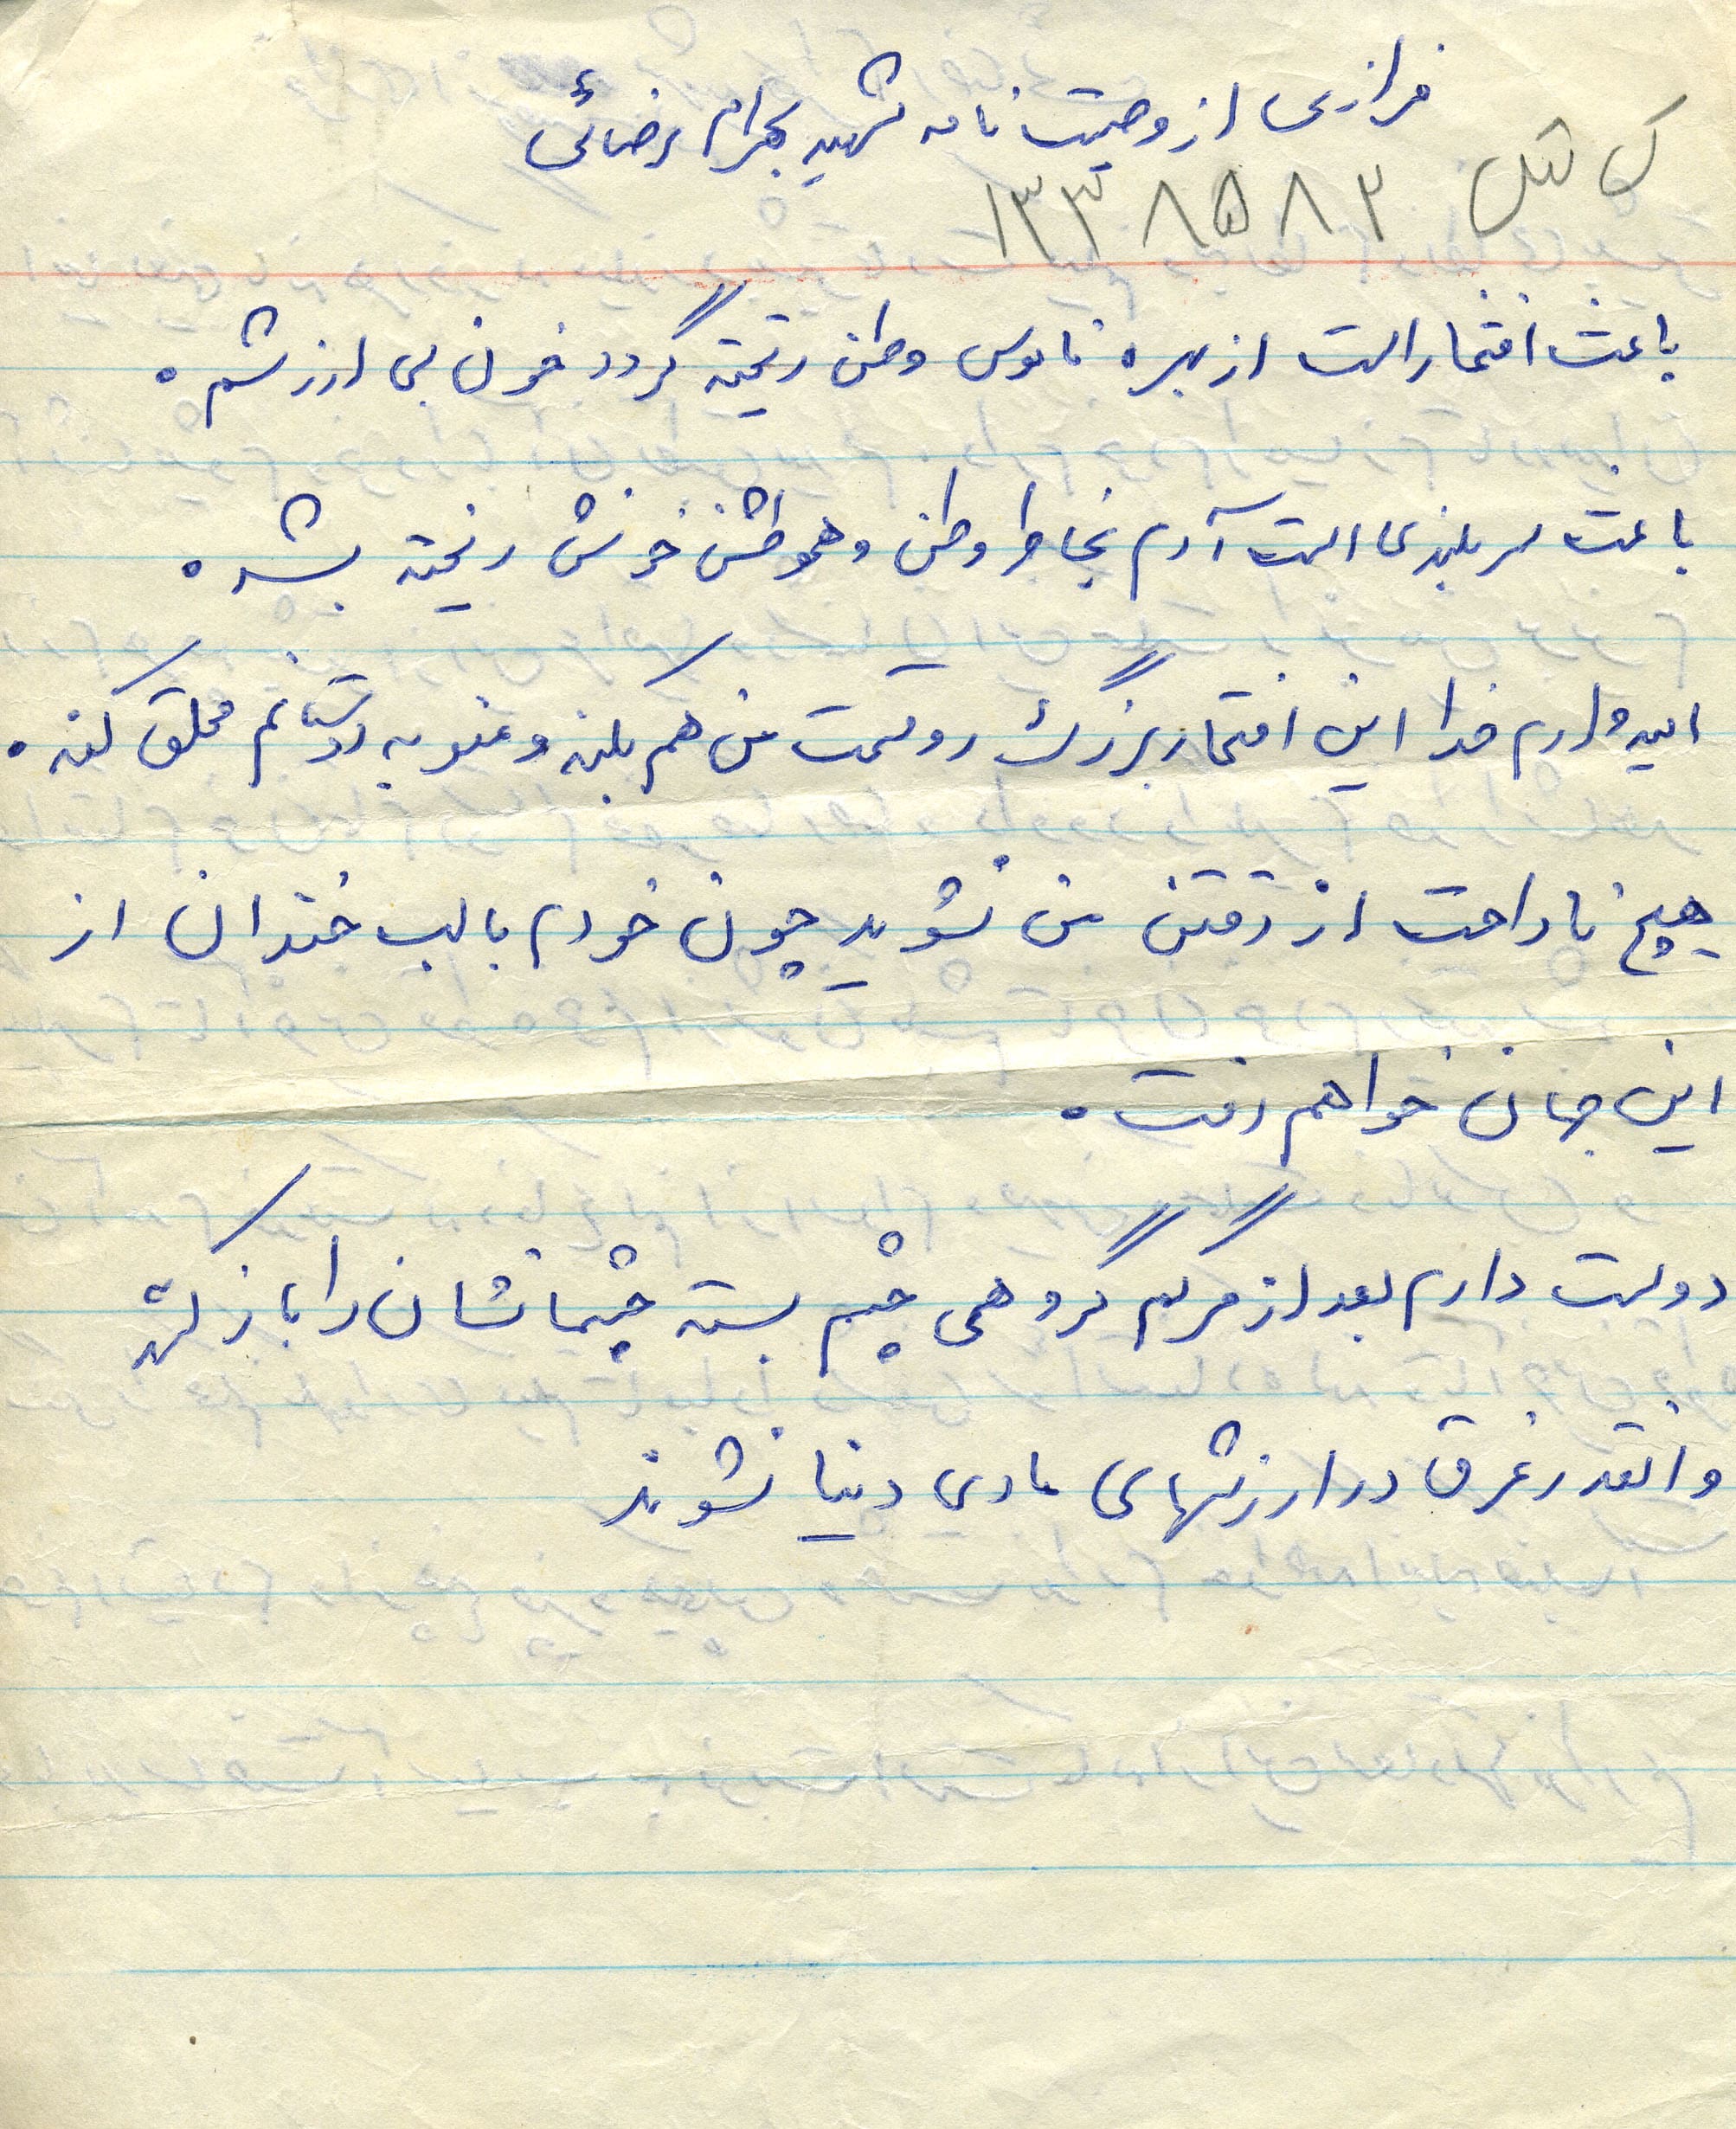 فرازی از وصیت نامه شهید بهرام رضائی
ک ش ۱۳۳۸۵۸۲
باعث افتخار است از بهره ناموس وطن ریخته گردد خون بی ارزشم.
باعث سربلندی است آدم بخاطر وطن و هموطنش خونش ریخته بشه.
امیدوارم خدا این افتخار بزرگ رو قسمت من هم بکنه و منو به دوستانم ملحق کنه.
هیچ ناراحت از رفتن من نشوید چون خودم با لب خندان از
این جهان خواهم رفت.
دوست دارم بعد از مرگم گروهی چشم بسته چشمانشان را باز کنند
و انقدر غرق در ارزشهای مادی دنیا نشوند